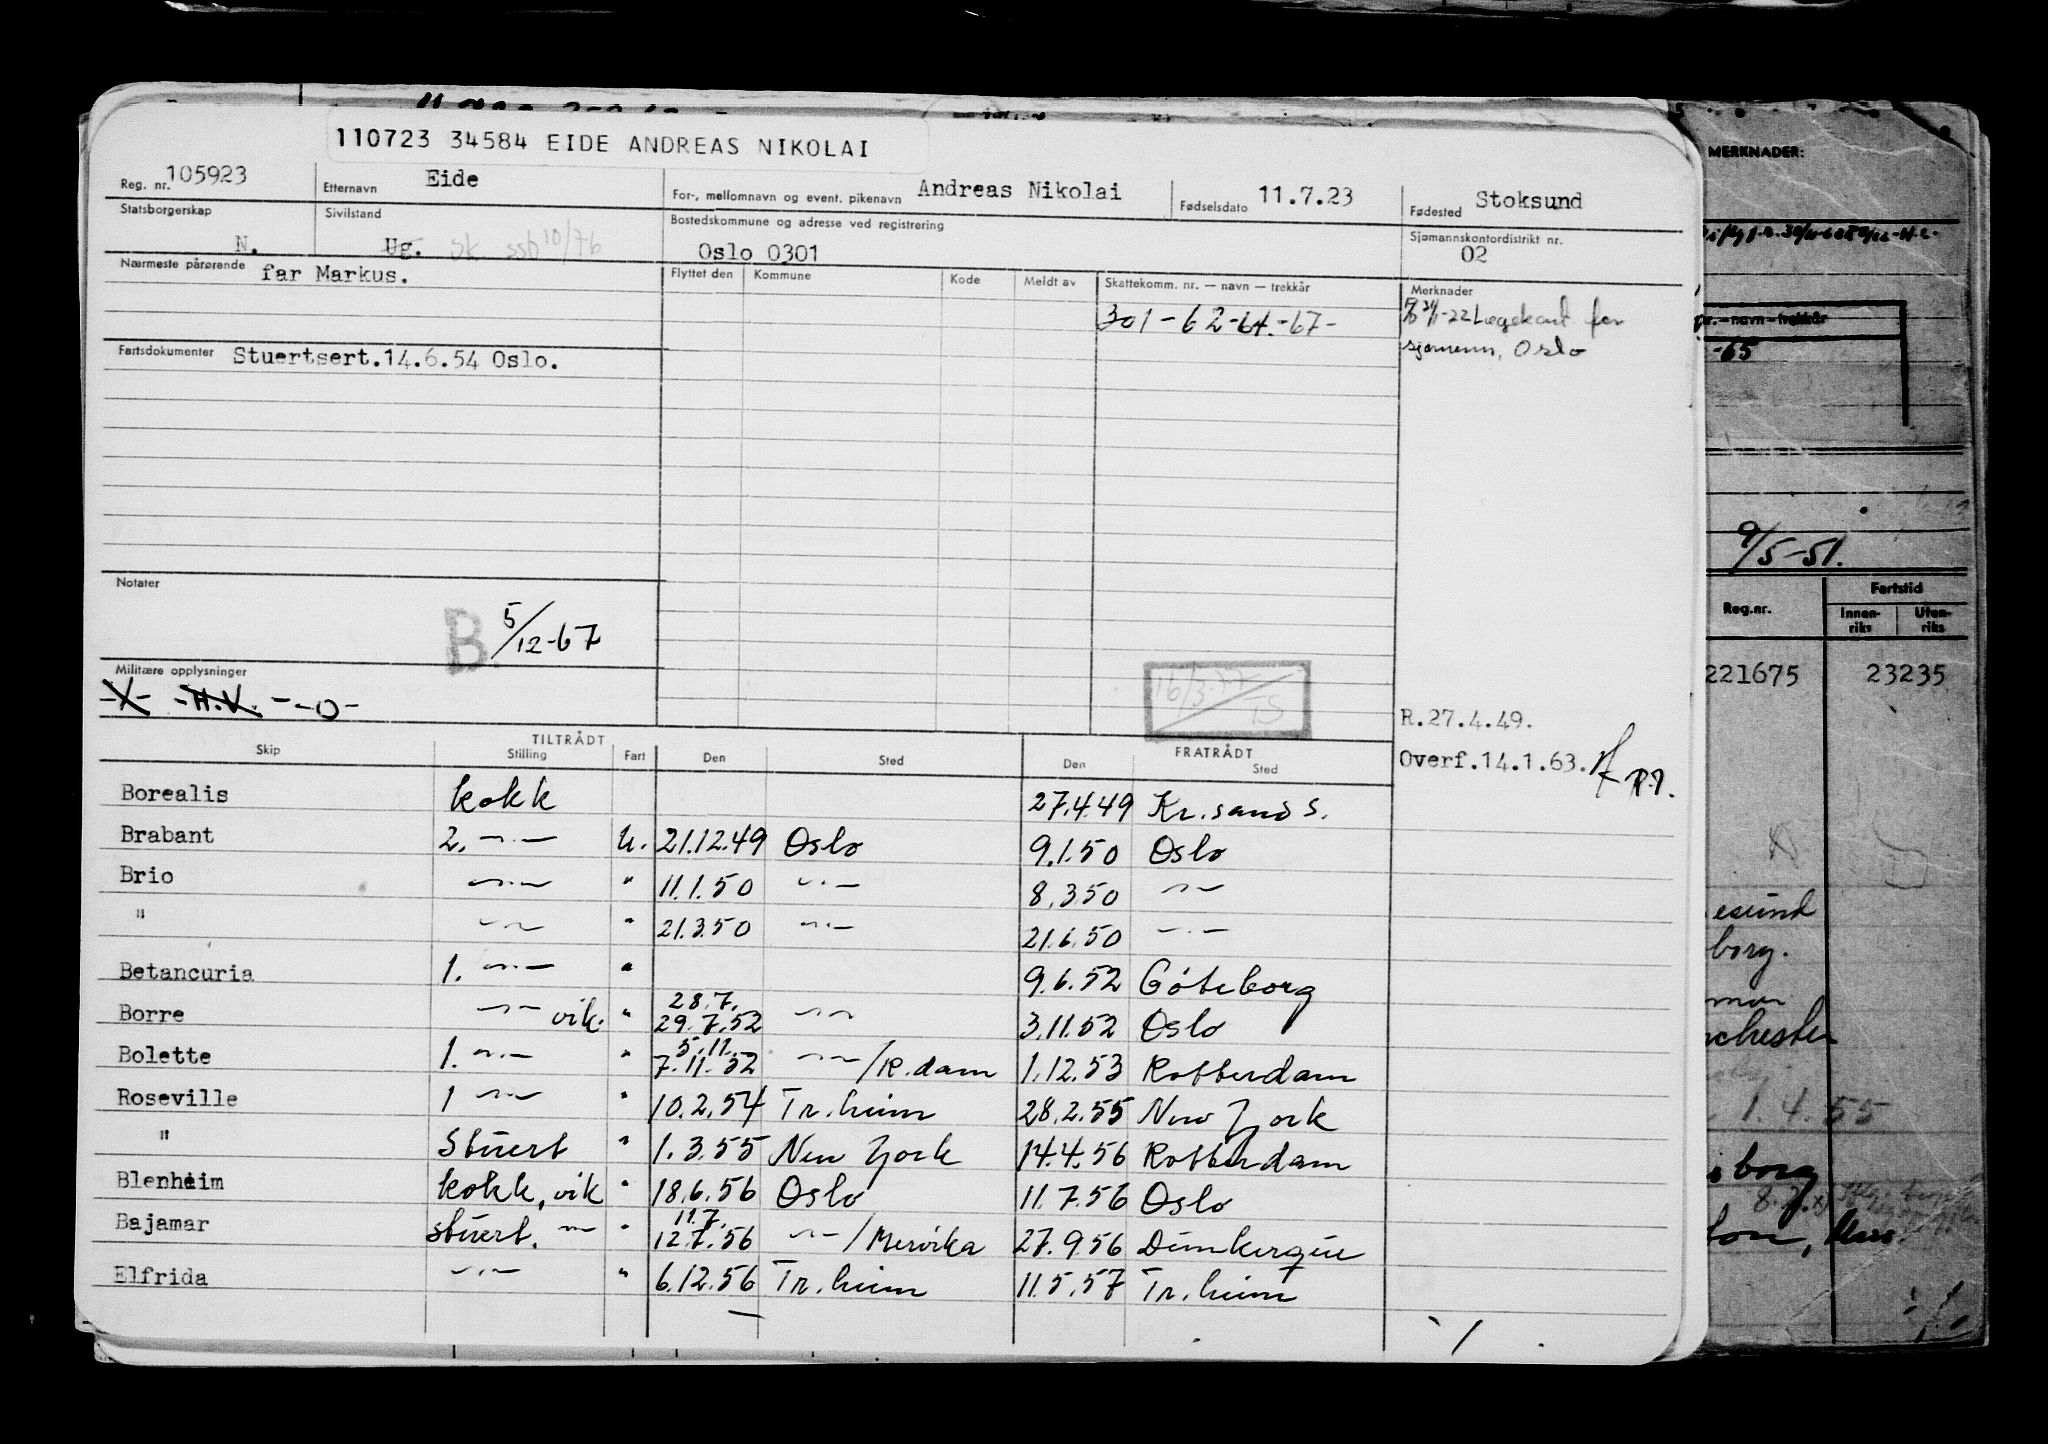 110723 34584 EIDE ANDREAS NIKOLAI
Reg. nr. 105923 Etternavn Eide For-, mellomnavn og event. pikenavn Andreas Nikolai Fødselsdato 11.7.23 Fødested Stoksund
Statsborgerskap N. Sivilstand Ug. Sk ssb 10/76 Bostedskommune og adresse ved registrering Oslo 0301 Sjømannskontordistrikt nr. 02
Nærmeste pårørende far Markus. Flyttet den Kommune Kode Meldt av Skattekomm. nr. — navn — trekkår Merknader
301-62-64-67- Lægekont for
sjømenn, Oslo
Fartsdokumenter Stuertsert.14.6.54 Oslo.
Notater
B 5/12-67
Militære opplysninger
-X- -H.V.- -O-
16/3-77
R.27.4.49.
Overf.14.1.63.
TILTRÅDT FRATRÅDT
Skip Stilling Fart Den Sted Den Sted
Borealis kokk 27.4.49 Kr.sand S.
Brabant 2. —"— U. 21.12.49 Oslo 9.1.50 Oslo
Brio —"— " 11.1.50 —"— 8.3.50 —"—
" —"— " 21.3.50 —"— 21.6.50 —"—
Betancuria 1. —"— " 9.6.52 Göteborg
Borre —"— vik. " 28.7. 29.7.52 —"— 3.11.52 Oslo
Bolette 1. —"— " 5.11. 7.11.52 —"—/R.dam 1.12.53 Rotterdam
Roseville 1 —"— " 10.2.54 Tr.heim 28.2.55 New York
" Stuert " 1.3.55 New York 14.4.56 Rotterdam
Blenheim kokk, vik " 18.6.56 Oslo 11.7.56 Oslo
Bajamar stuert. —"— " 11.7. 12.7.56 —"—/Mervika 27.9.56 Dunkerque
Elfrida —"— " 6.12.56 Tr.heim 11.5.57 Tr.heim
MERKNADER:
nr.—navn—trekkår
-65
9/5-51.
Reg.nr. Fartstid
Innen-riks Uten-riks
221675 23235
esund
borg.
chester
1.4.55
borg